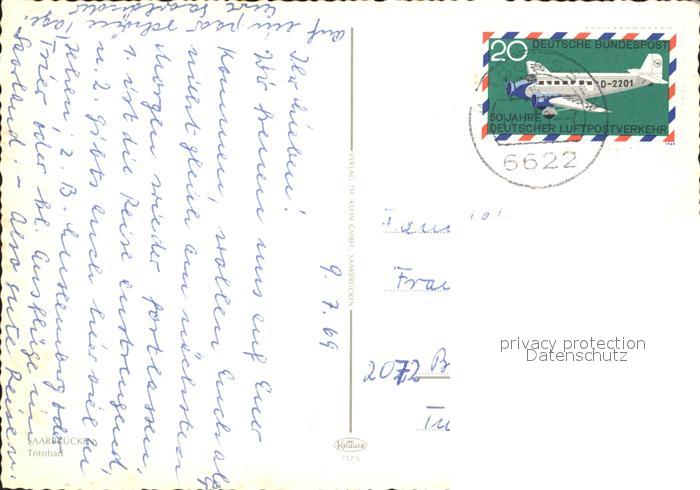 9. 7. 69
Ihr Lieben!
Wir freuen uns auf Euer
Kommen, wollen Euch als
nicht gleich am nächsten
Morgen wieder fortlassen,
1. ist die Reise anstrengend,
u. 2. gibts auch hier viel zu
sehen, z. B. Luxemburg oder
Trier oder kl. Ausflüge im
Saarland. - Also gute Reise
auf ein paar schöne
Tage!
20 DEUTSCHE BUNDESPOST
D-2201
50 JAHRE
DEUTSCHER LUFTPOSTVERKEHR
1969
6622
VERLAG TH. KLEIN GMBH., SAARBRÜCKEN
Frau
2072 B
privacy protection
Datenschutz
SAARBRÜCKEN
Totobad
Krüger
712/5